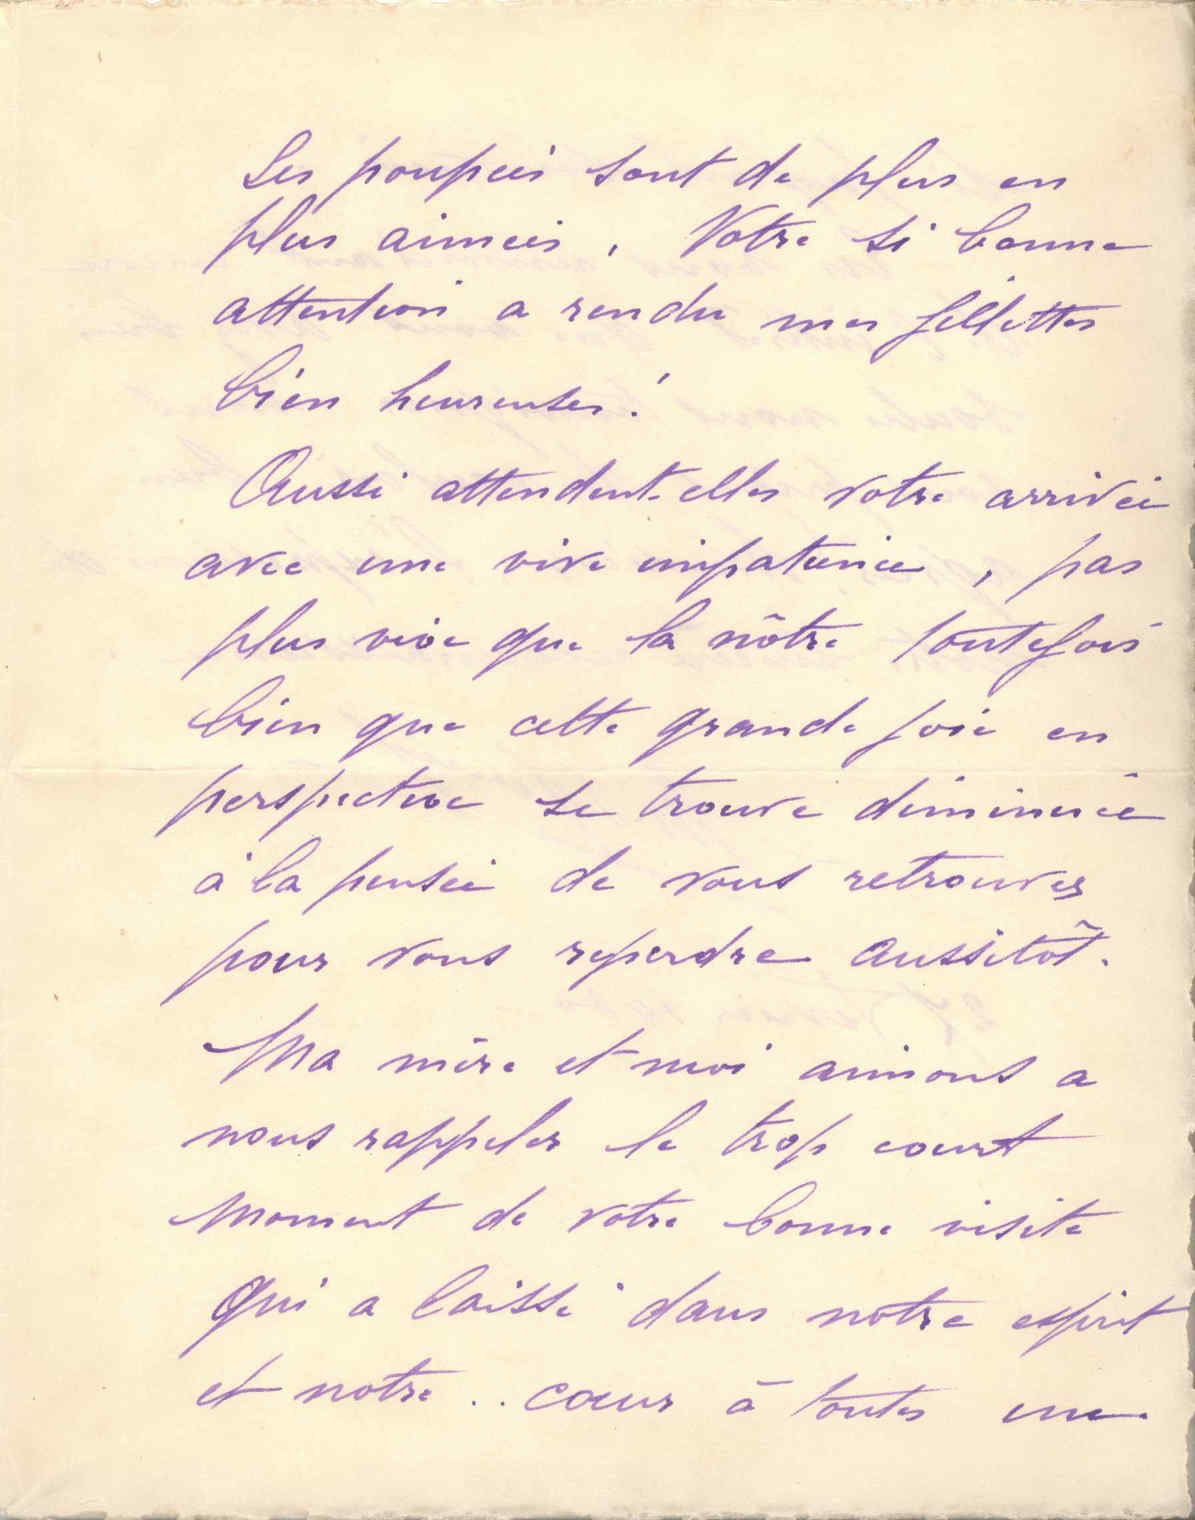 Les poupées sont de plus en
plus aimées, Votre si bonne
attention a rendu mes fillettes
bien heureuses!
Aussi attendent-elles votre arrivée
avec une vive impatience, pas
plus vive que la nôtre toutefois
bien que cette grande joie en
perspective se trouve diminuée
à la pensée de vous retrouver
pour vous reperdre aussitôt.
Ma mère et moi aimons a
nous rappeler le trop court
moment de votre bonne visite
qui a laissé dans notre esprit
et notre .. cœur à toutes une